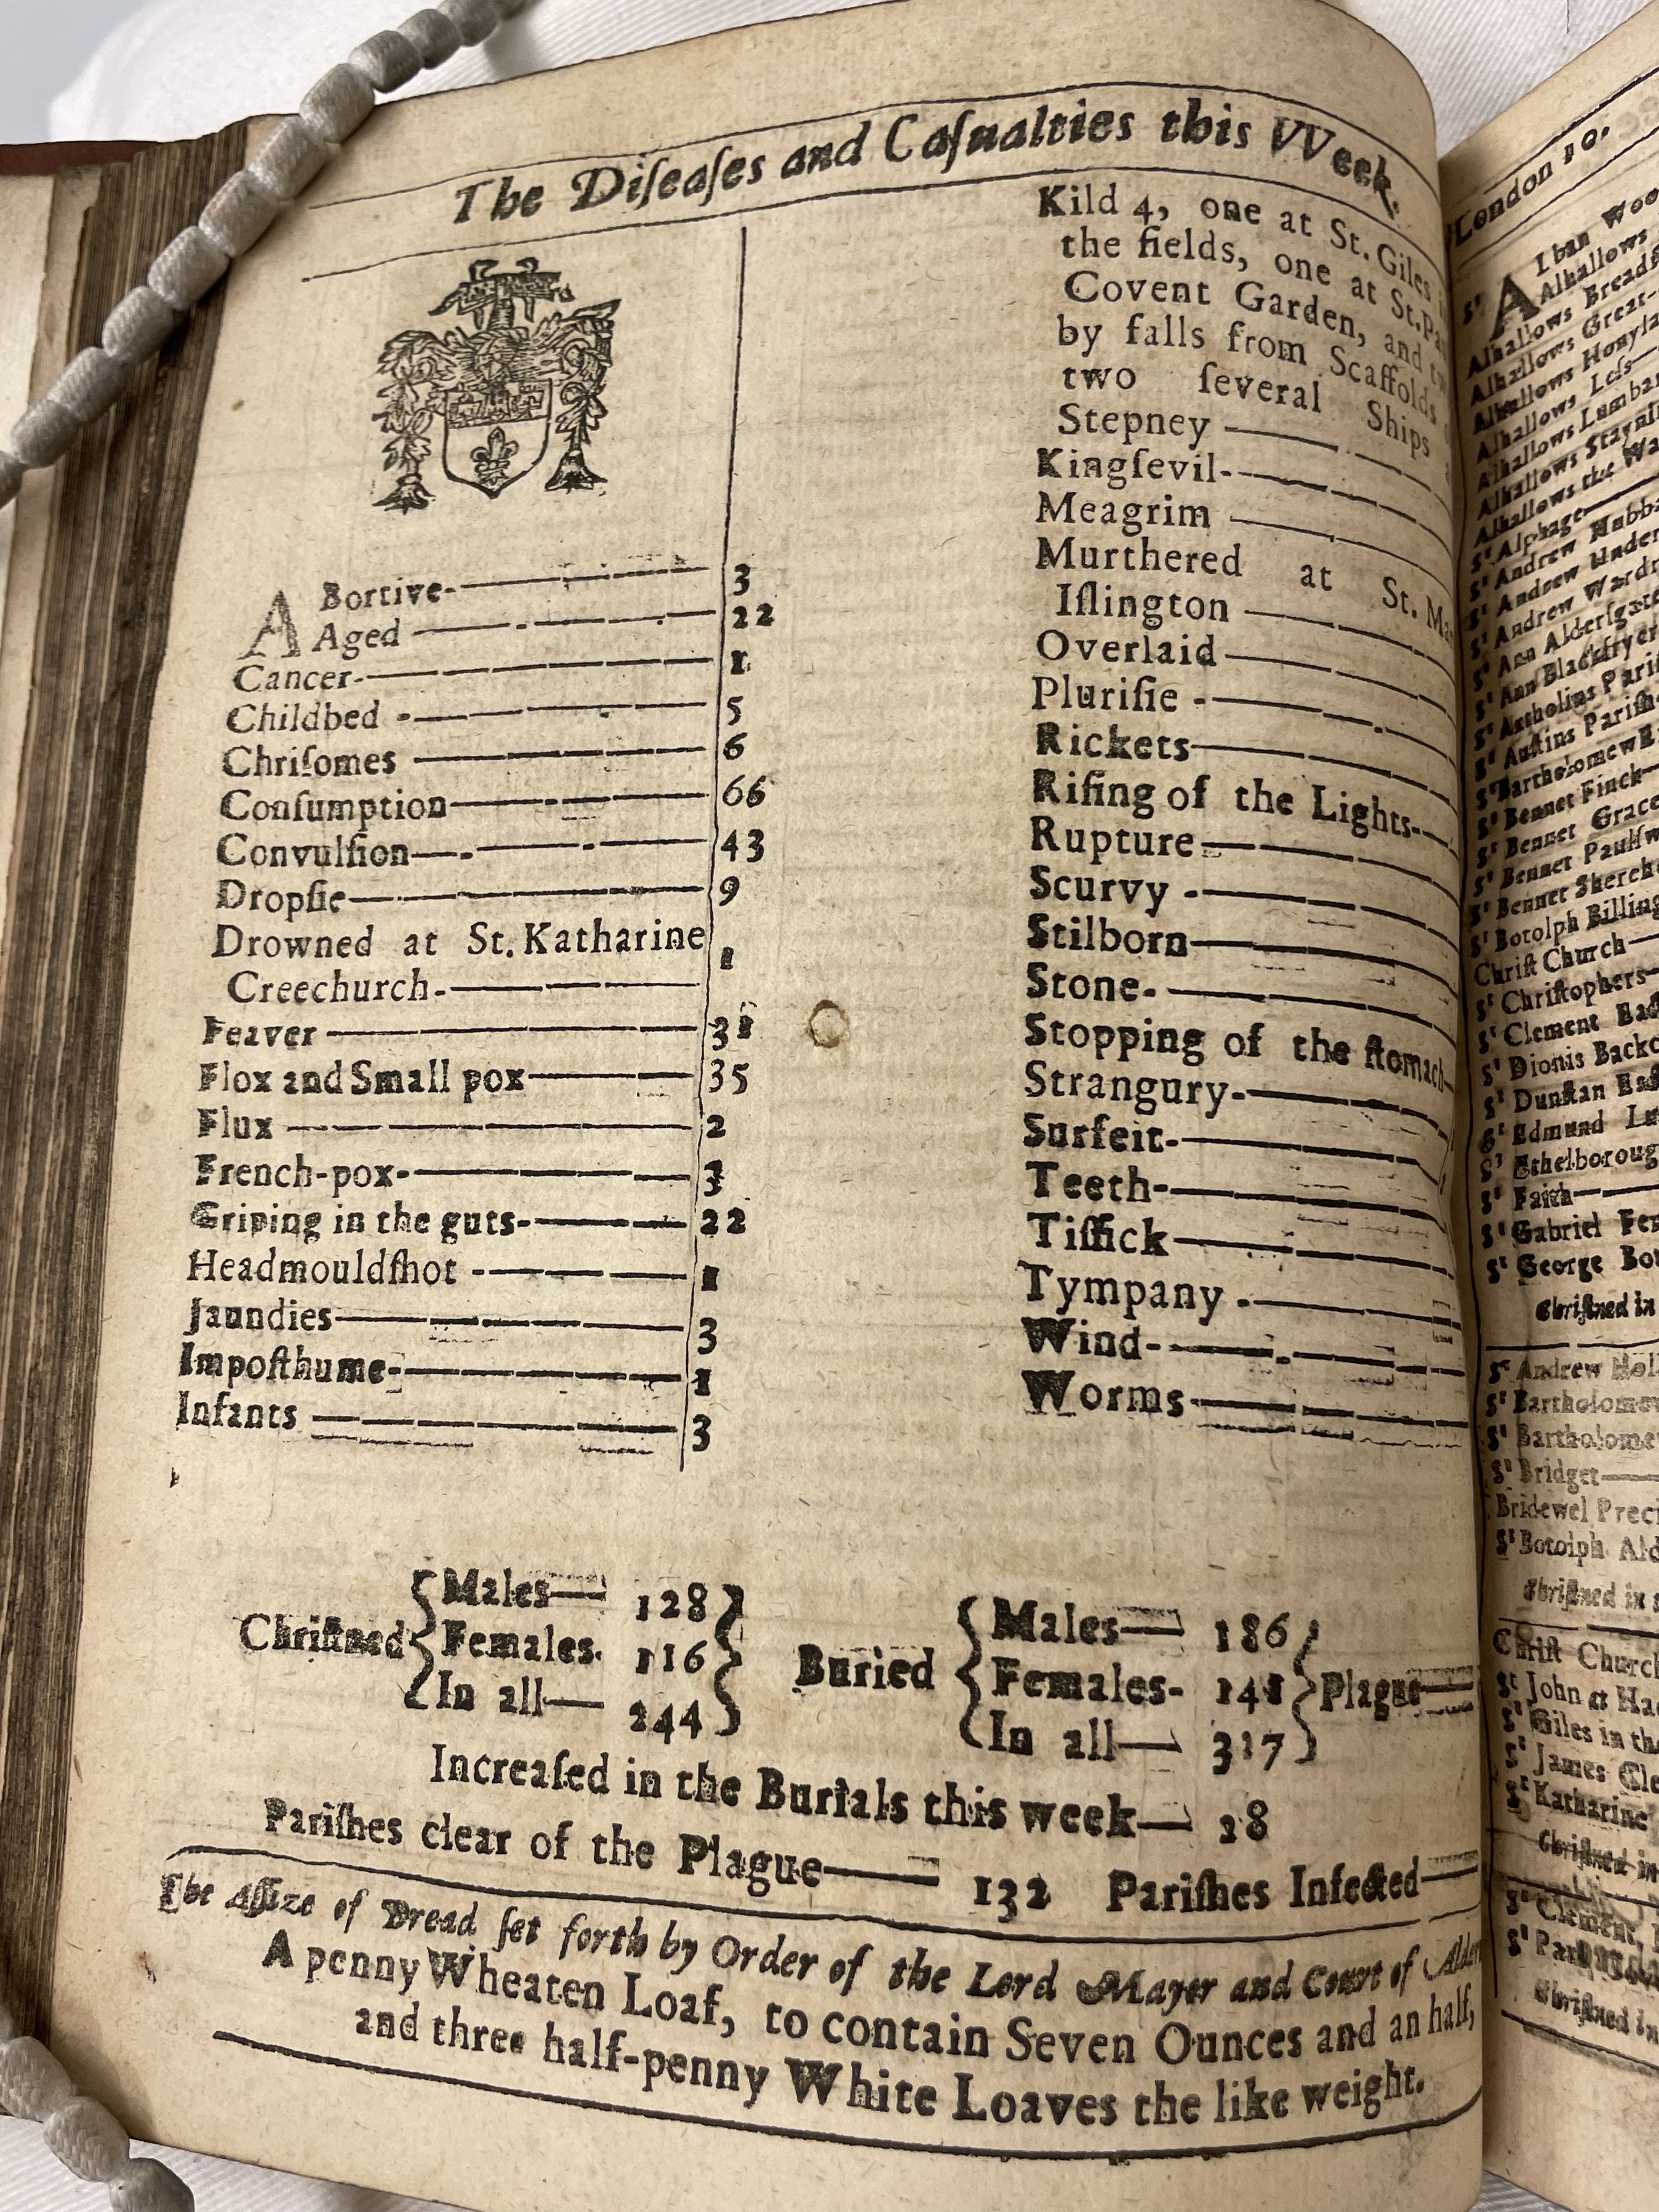 The Diſeaſes and Caſualties this VVeek.
ABortive- 3
Aged 22
Cancer- 1
Childbed - 5
Chriſomes 6
Conſumption 66
Convulſion 43
Dropſie 9
Drowned at St. Katharine
Creechurch- 1
Feaver 31
Flox and Small pox 35
Flux 2
French-pox- 3
Griping in the guts- 22
Headmouldſhot - 1
Jaundies 3
Impoſthume- 1
Infants 3
Kild 4, one at St. Giles
the fields, one at St.
Covent Garden, and
by falls from Scaffolds
two ſeveral Ships
Stepney
Kingſevil-
Meagrim
Murthered at St.
Iſlington
Overlaid
Pluriſie -
Rickets
Riſing of the Lights-
Rupture
Scurvy -
Stilborn
Stone-
Stopping of the ſtomach
Strangury-
Surfeit-
Teeth-
Tiſſick
Tympany -
Wind-
Worms
Chriſtned { Males 128
Females. 116
In all 244 }
Buried { Males 186
Females- 141
In all 317 } Plague
Increaſed in the Burials this week 18
Pariſhes clear of the Plague 132 Pariſhes Infected
The Aſſize of Bread ſet forth by Order of the Lord Mayer and Court of
A penny Wheaten Loaf, to contain Seven Ounces and an half,
and three half-penny White Loaves the like weight.
London 10.
Alban
Alhallows
Alhallows
Alhallows Great-
Alhallows
Alhallows Leſs
Alhallows
Alhallows
Alhallows the
Sᵗ Alphage
Sᵗ Andrew
Sᵗ Andrew
Sᵗ Andrew
Sᵗ Ann
Sᵗ Ann
Sᵗ Antholins
Sᵗ Auſtins
Sᵗ Bartholomew
Sᵗ Bennet Finck
Sᵗ Bennet
Sᵗ Bennet
Sᵗ Bennet
Sᵗ Botolph
Chriſt Church
Sᵗ Chriſtophers
Sᵗ Clement
Sᵗ Dionis
Sᵗ Dunſtan
Sᵗ Edmund
Sᵗ
Sᵗ Faith
Sᵗ Gabriel
Sᵗ George
Chriſtned in
Sᵗ Andrew
Sᵗ
Sᵗ
Sᵗ Bridget
Bridewel
Sᵗ Botolph
Chriſtned in
Chriſt
Sᵗ John at
Sᵗ Giles in
Sᵗ James
Sᵗ Katharine
Chriſtned in
Sᵗ Clement,
Sᵗ
Chriſtned in